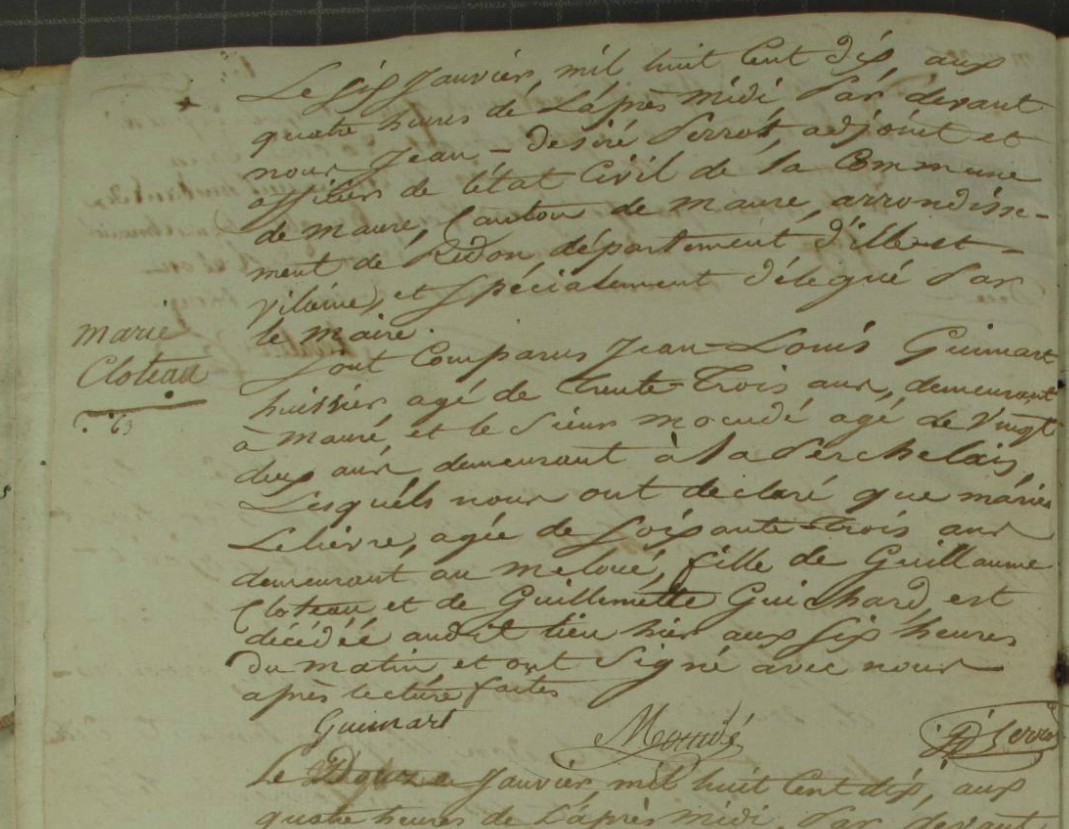 Le six Janvier, mil huit Cent dix, aux
quatre heures de L'après midi, Par devant
nous Jean - Desiré Perrot, adjoint et
officier de l'état Civil de la Commune
de maure, Canton de maure, arrondisse-
ment de Redon département d'ille-et-
vilaine, et Spécialement délégué Par
le maire.
marie
Cloteau
63
Sont Comparus Jean-Louis Guimart
huissier, agé de Trente-Trois ans, demeurant
à maure, et le Sieur agé de Vingt
deux ans demeurant à la Perchelais,
Lesquels nous ont declaré que marie
Lelievre, agée de Soixante-Trois ans
demeurant au meloué, fille de Guillaume
Cloteau et de Guillemette Guichard, est
décédée audit lieu hier aux Six heures
du matin, et ont Signé avec nous
après lecture faites
Guimart
JD Perrot
Le Janvier, mil huit Cent dix, aux
quatre heures de L'après midi, Par devant